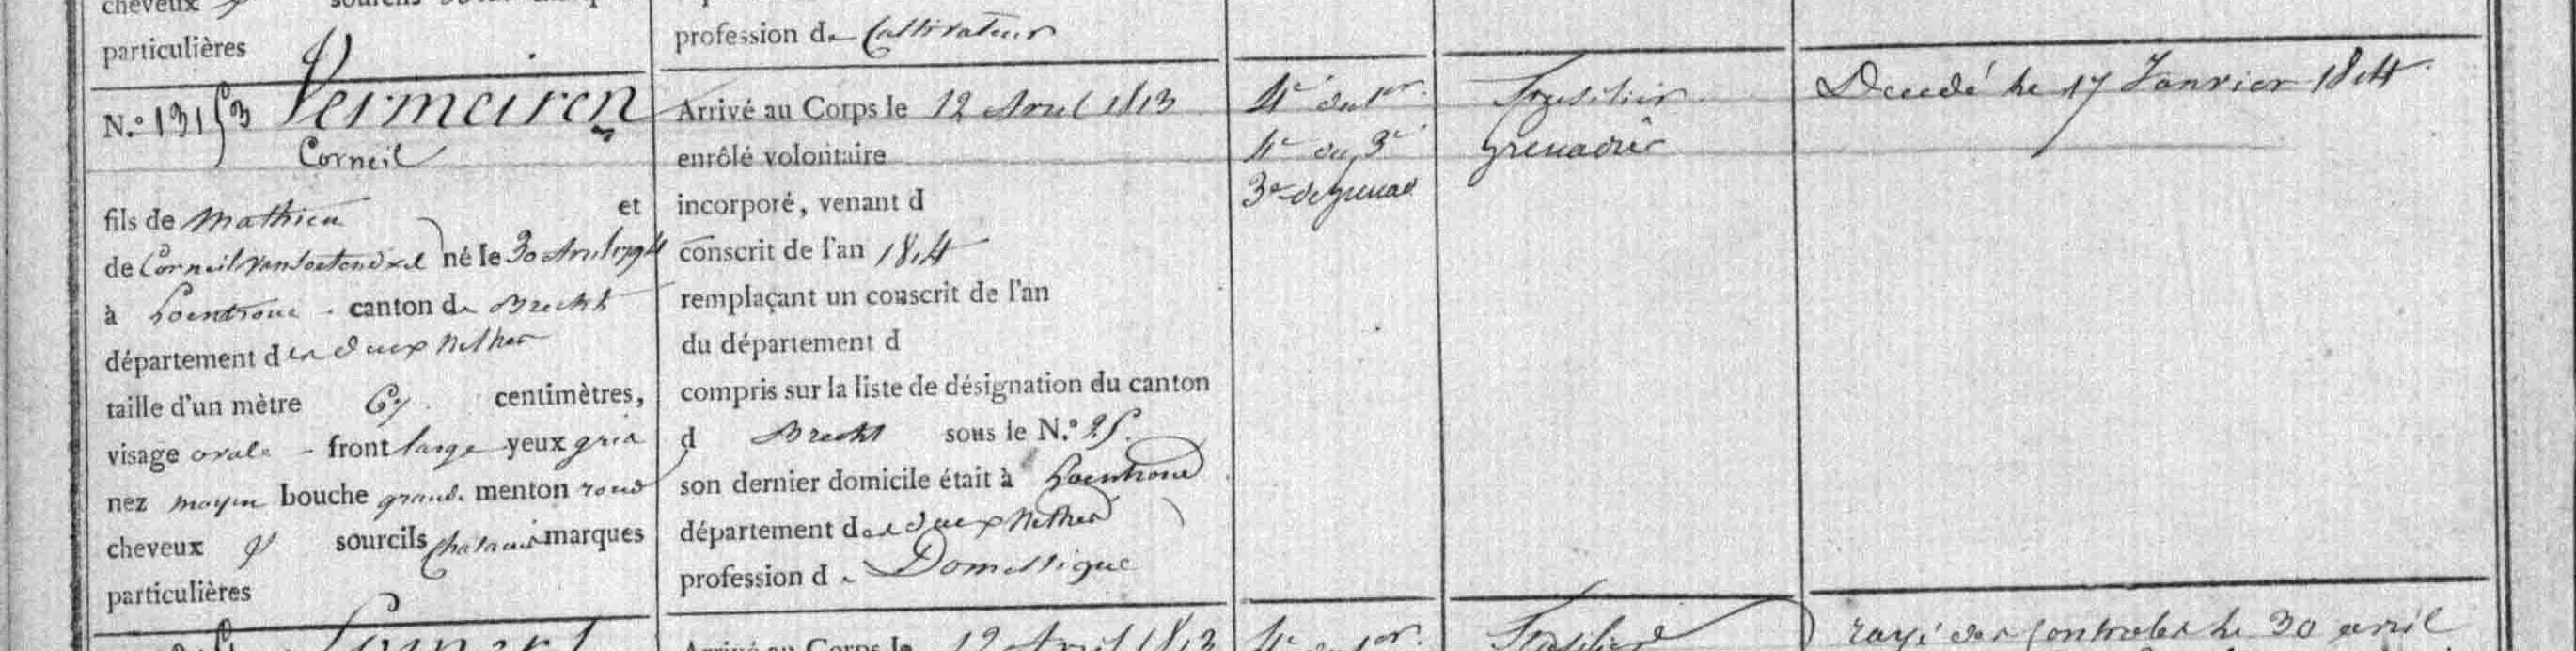 cheveux
particulières
profession de Cultivateur
N.º 13153 Vermeiren
Corneil
fils de Mathieu et
de Corneil né le 30 Avril 1794
à Loenhout canton de Brecht
département des deux Nethes
taille d'un mètre 67 centimètres,
visage ovale front large yeux gris
nez moyen bouche grande menton rond
cheveux et sourcils chatains marques
particulières
Arrivé au Corps le 12 Avril 1813
enrôlé volontaire
incorporé, venant d
conscrit de l'an 1814
remplaçant un conscrit de l'an
du département d
compris sur la liste de désignation du canton
d Brecht sous le N.º 25.
son dernier domicile était à Loenhout
département des deux Nethes
profession de Domestique
4e du 1er.
4e du 3e
3e de grenad
Fusilier
grenadier
Décédé le 17 Janvier 1814
Arrivé au Corps le 12 Avril 1813
4e du 1er.
Fusilier
rayé des Controles le 30 avril